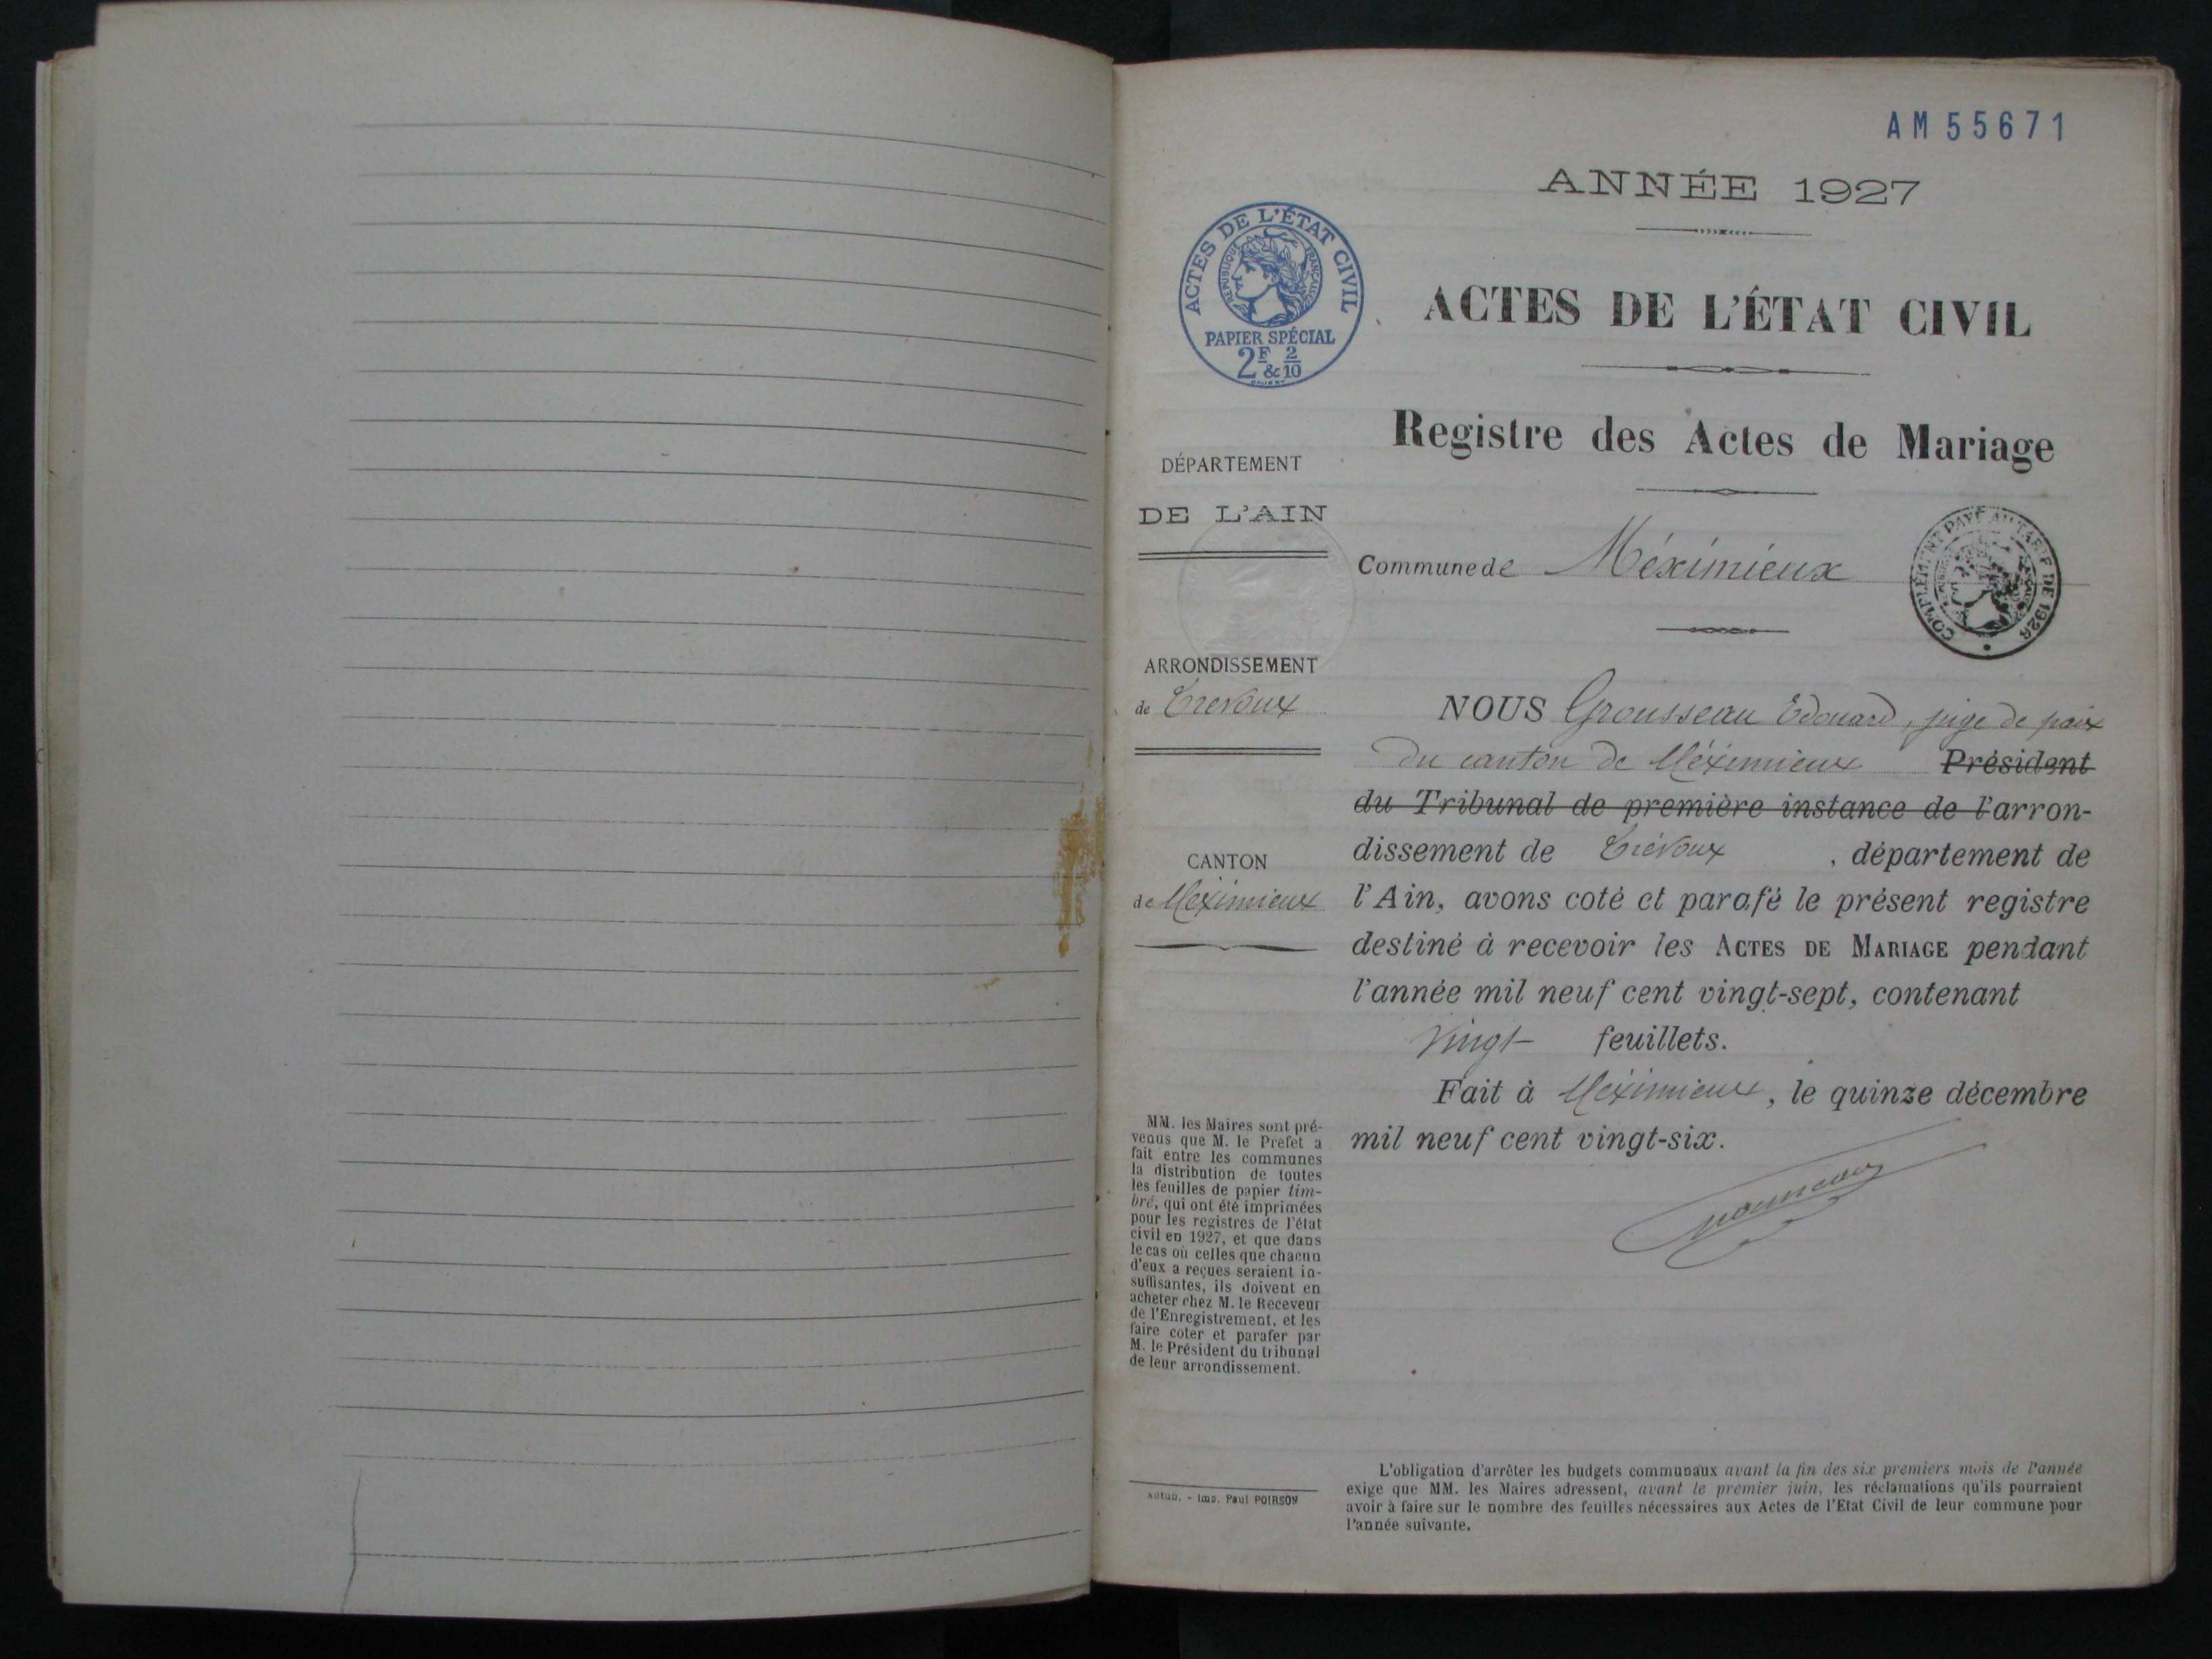 AM 55671
ANNÉE 1927
ACTES DE L'ÉTAT CIVIL
RÉPUBLIQUE FRANÇAISE
PAPIER SPÉCIAL
2F & 2/10
ACTES DE L'ÉTAT CIVIL
Registre des Actes de Mariage
DÉPARTEMENT
DE L'AIN
Commune de Méximieux
COMPLÉMENT PAYÉ AU TARIF DE 1926
ARRONDISSEMENT
de Trévoux
CANTON
de Méximieux
NOUS Grousseau Edouard, juge de paix
du canton de Méximieux Président
du Tribunal de première instance de l'arron-
dissement de Trévoux, département de
l'Ain, avons coté et parafé le présent registre
destiné à recevoir les ACTES DE MARIAGE pendant
l'année mil neuf cent vingt-sept, contenant
Vingt feuillets.
Fait à Méximieux, le quinze décembre
mil neuf cent vingt-six.
MM. les Maires sont pré-
venus que M. le Préfet a
fait entre les communes
la distribution de toutes
les feuilles de papier tim-
bré, qui ont été imprimées
pour les registres de l'état
civil en 1927, et que dans
le cas où celles que chacun
d'eux a reçues seraient in-
suffisantes, ils doivent en
acheter chez M. le Receveur
de l'Enregistrement, et les
faire coter et parafer par
M. le Président du tribunal
de leur arrondissement.
Imp. Paul POIRSON
L'obligation d'arrêter les budgets communaux avant la fin des six premiers mois de l'année
exige que MM. les Maires adressent, avant le premier juin, les réclamations qu'ils pourraient
avoir à faire sur le nombre des feuilles nécessaires aux Actes de l'Etat Civil de leur commune pour
l'année suivante.